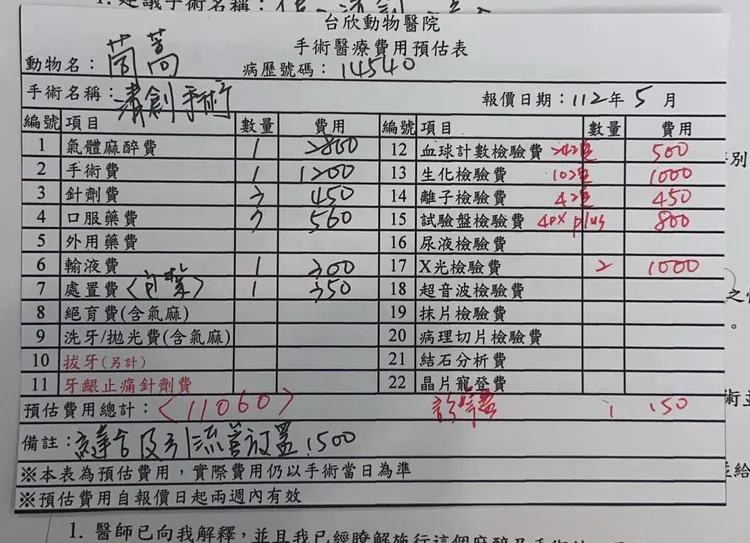 1. 建議手術名稱：
台欣動物醫院
手術醫療費用預估表
動物名：茼蒿 病歷號碼：14540
手術名稱：清創手術 報價日期：112年 5 月
編號 項目 數量 費用 編號 項目 數量 費用
1 氣體麻醉費 1 2800 12 血球計數檢驗費 500
2 手術費 1 1200 13 生化檢驗費 10項 1000
3 針劑費 3 450 14 離子檢驗費 4項 450
4 口服藥費 7 560 15 試驗盤檢驗費 4DX plus 800
5 外用藥費 16 尿液檢驗費
6 輸液費 1 300 17 X光檢驗費 2 1000
7 處置費 1 350 18 超音波檢驗費
8 絕育費(含氣麻) 19 抹片檢驗費
9 洗牙/拋光費(含氣麻) 20 病理切片檢驗費
10 拔牙(另計) 21 結石分析費
11 牙齦止痛針劑費 22 晶片寵登費
預估費用總計：〈11060〉 診察費 1 150
備註：縫合及引流管放置 1500
※本表為預估費用，實際費用仍以手術當日為準
※預估費用自報價日起兩週內有效
1. 醫師已向我解釋，並且我已經瞭解施行這個麻醉及手術